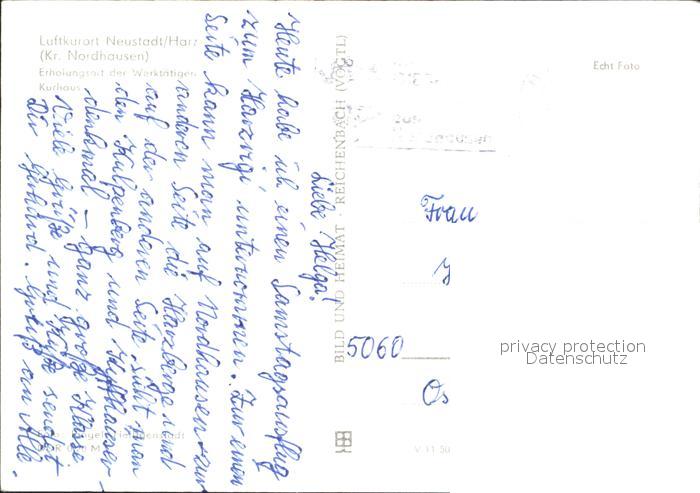 Luftkurort Neustadt/Harz
(Kr. Nordhausen)
Erholungsort der Werktätigen
Kurhaus
Echt Foto
Liebe Helga!
Heute habe ich einen Samstagsausflug
zum Harzrigi unternommen. Zur einen
Seite kann man auf Nordhausen zur
anderen Seite die Harzberge und
auf der anderen Seite sieht man
den Kulpenberg und Kyffhäuser-
denkmal – ganz große Klasse.
Viele Grüße und Küße sendet
Dir Gerhard. Gruß an Alle.
BILD UND HEIMAT · REICHENBACH (VOGTL)
Frau
5060
Os
privacy protection
Datenschutz
V 11 50